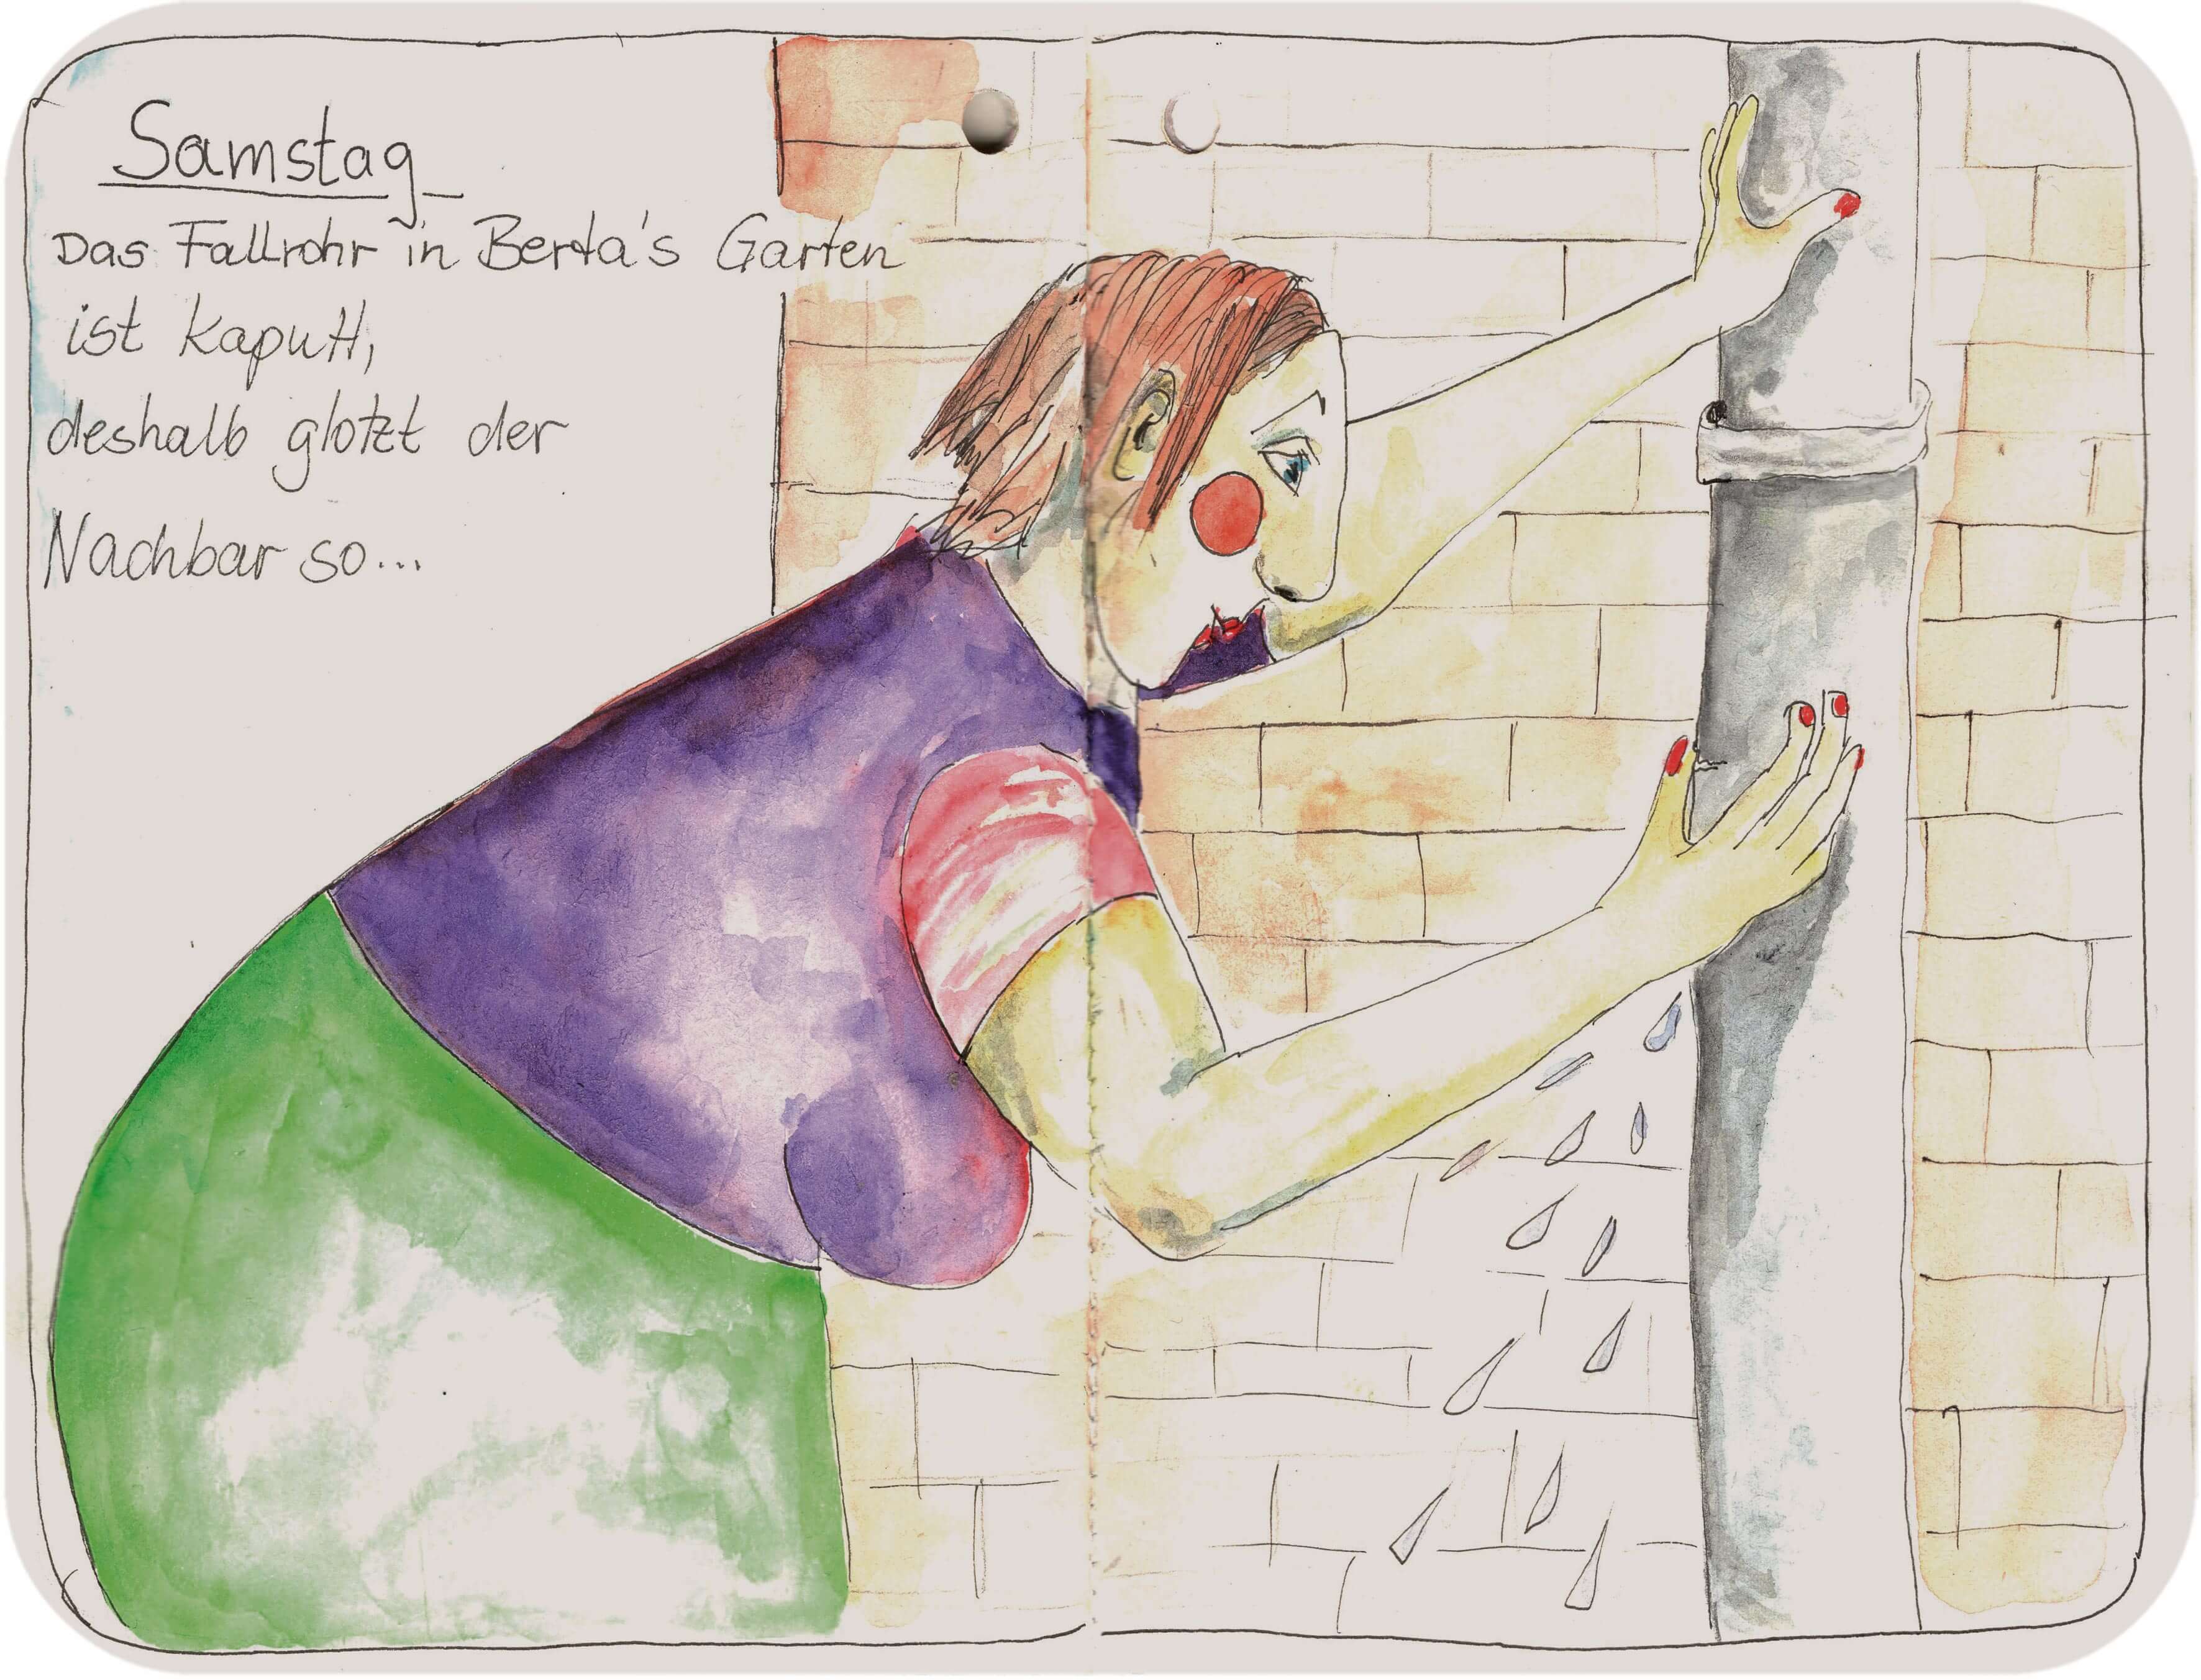 Samstag
Das Fallrohr in Berta's Garten
ist kaputt,
deshalb glotzt der
Nachbar so...